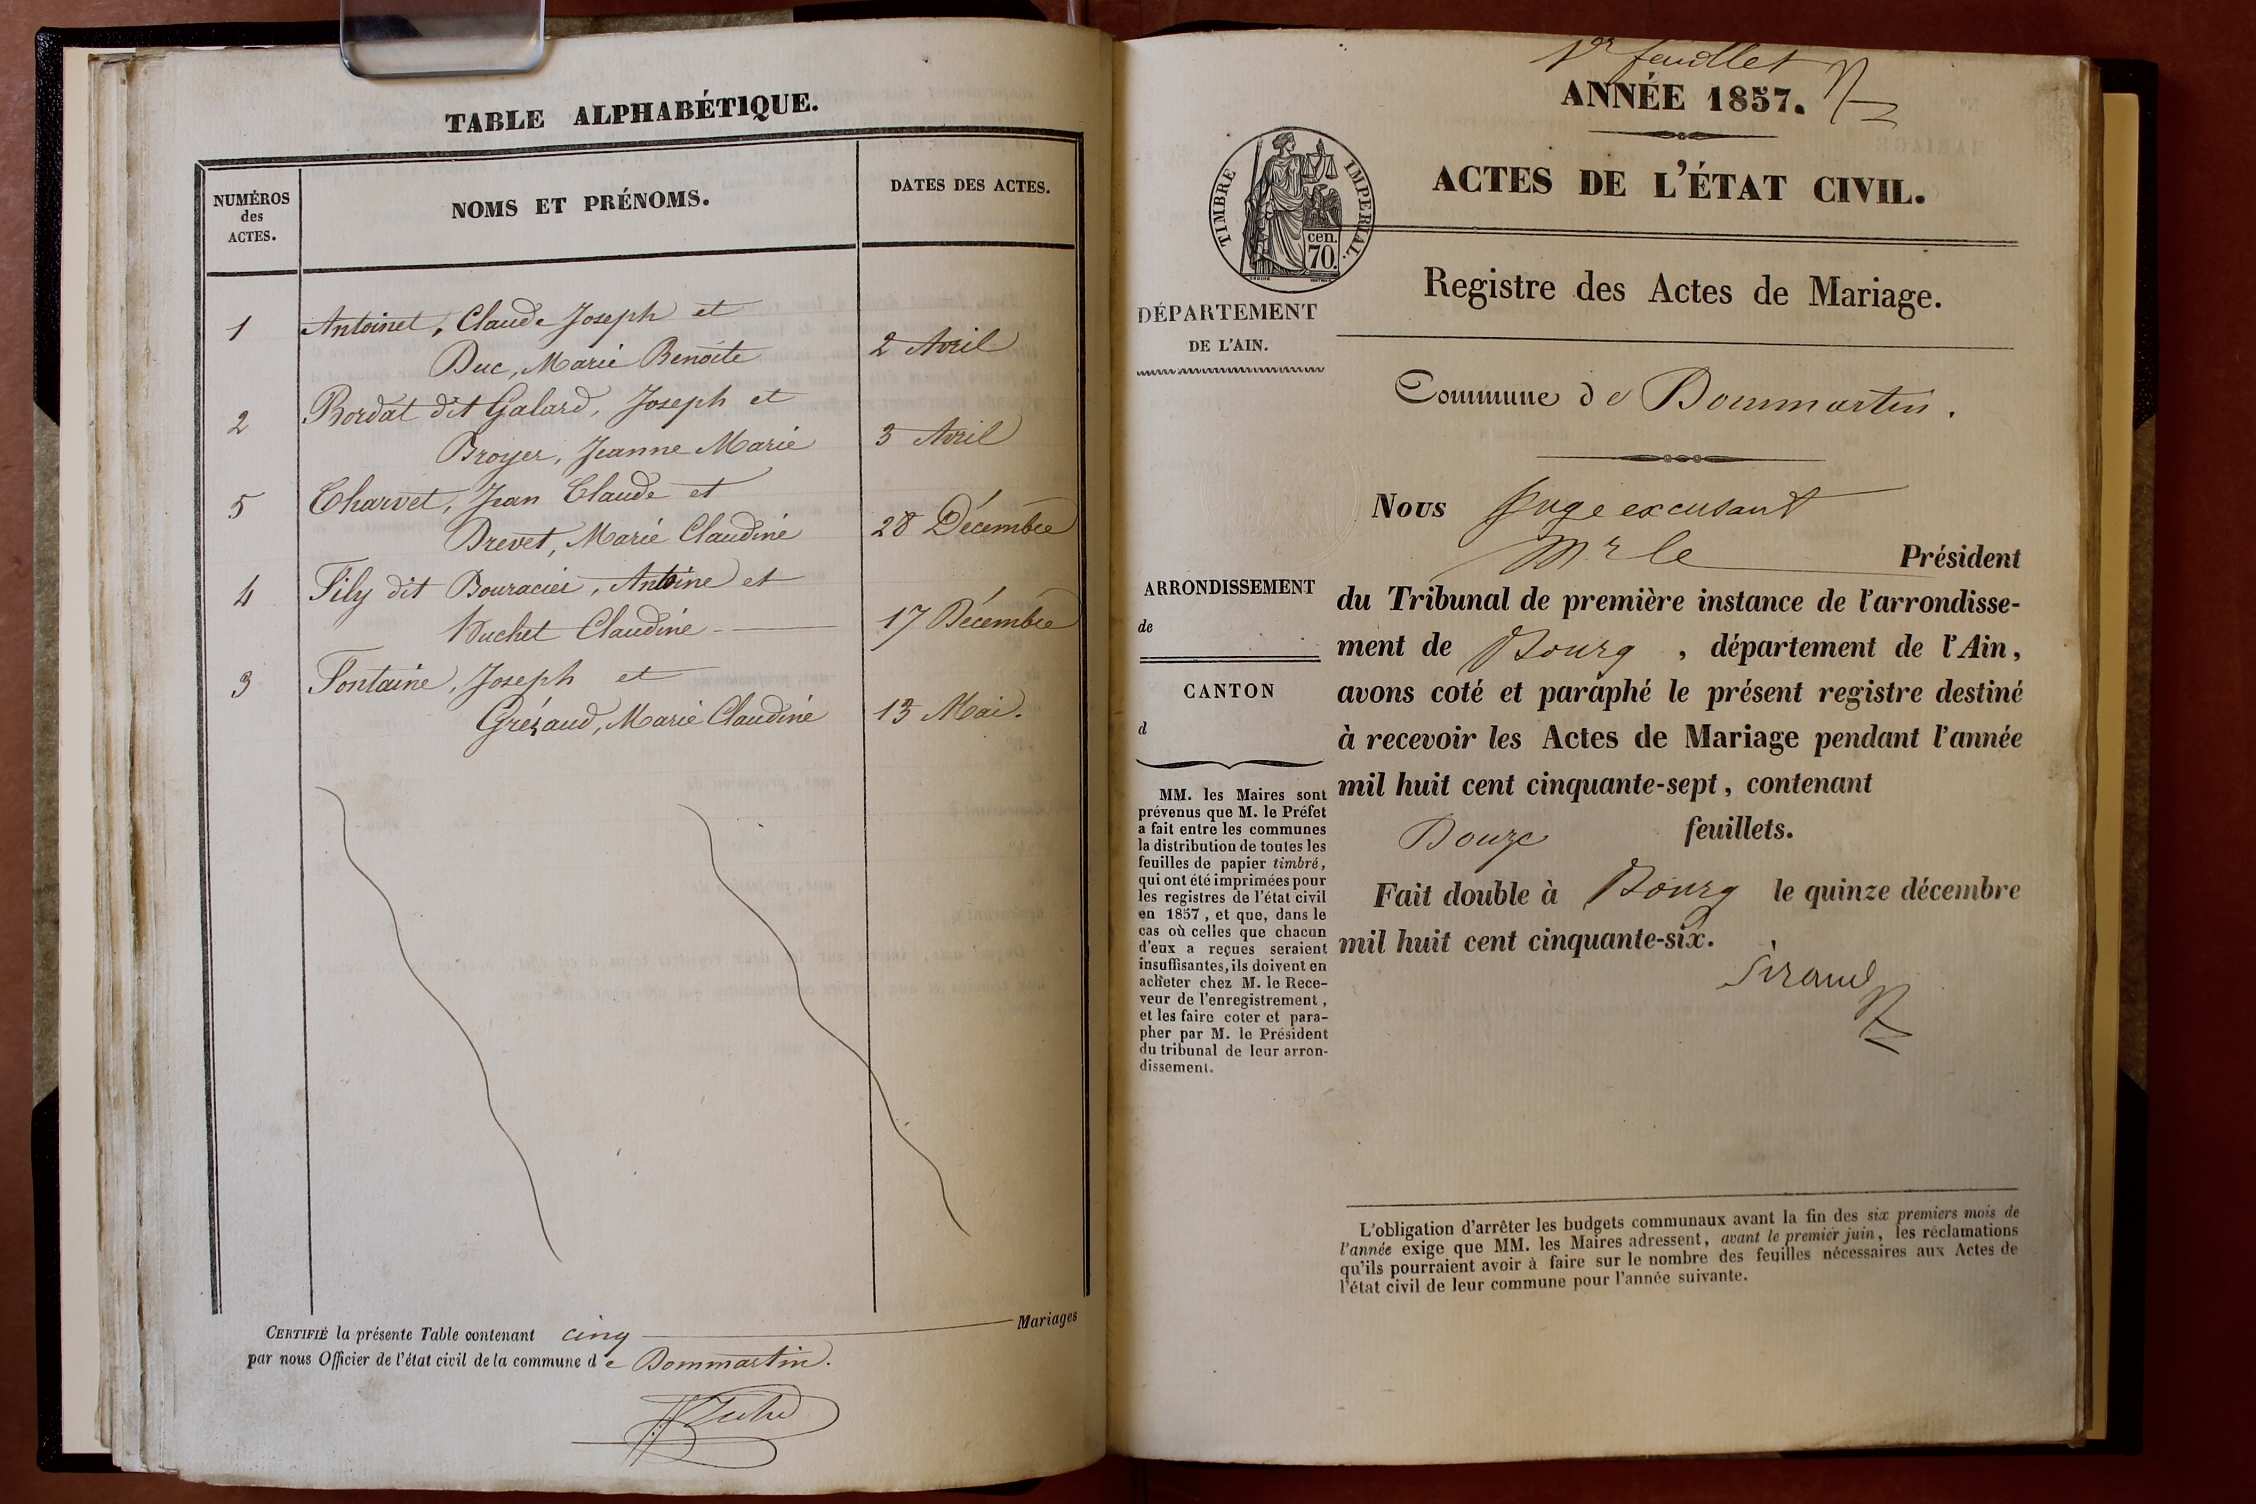 TABLE ALPHABÉTIQUE.
NUMÉROS
des
ACTES.
NOMS ET PRÉNOMS.
DATES DES ACTES.
1 Antoinet, Claude Joseph et
Duc, Marie Benoite 2 Avril
2 Bordat dit Galard, Joseph et
Broyer, Jeanne Marie 3 Avril
5 Charvet, Jean Claude et
Drevet, Marie Claudine 28 Décembre
4 Fily dit Bouracier, Antoine et
Huchet Claudine 17 Décembre
3 Fontaine, Joseph et
Grézaud, Marie Claudine 13 Mai.
CERTIFIÉ la présente Table contenant cinq Mariages
par nous Officier de l'état civil de la commune de Dommartin.
1er feuillet
ANNÉE 1857.
TIMBRE IMPERIAL.
cen.
70.
ACTES DE L'ÉTAT CIVIL.
Registre des Actes de Mariage.
DÉPARTEMENT
DE L'AIN.
Commune de Dommartin.
ARRONDISSEMENT
de
CANTON
d
MM. les Maires sont
prévenus que M. le Préfet
a fait entre les communes
la distribution de toutes les
feuilles de papier timbré,
qui ont été imprimées pour
les registres de l'état civil
en 1857, et que, dans le
cas où celles que chacun
d'eux a reçues seraient
insuffisantes, ils doivent en
acheter chez M. le Rece-
veur de l'enregistrement,
et les faire coter et para-
pher par M. le Président
du tribunal de leur arron-
dissement.
Nous Juge excusant
Mr le Président
du Tribunal de première instance de l'arrondisse-
ment de Bourg, département de l'Ain,
avons coté et paraphé le présent registre destiné
à recevoir les Actes de Mariage pendant l'année
mil huit cent cinquante-sept, contenant
Douze feuillets.
Fait double à Bourg le quinze décembre
mil huit cent cinquante-six.
Sirand
L'obligation d'arrêter les budgets communaux avant la fin des six premiers mois de
l'année exige que MM. les Maires adressent, avant le premier juin, les réclamations
qu'ils pourraient avoir à faire sur le nombre des feuilles nécessaires aux Actes de
l'état civil de leur commune pour l'année suivante.